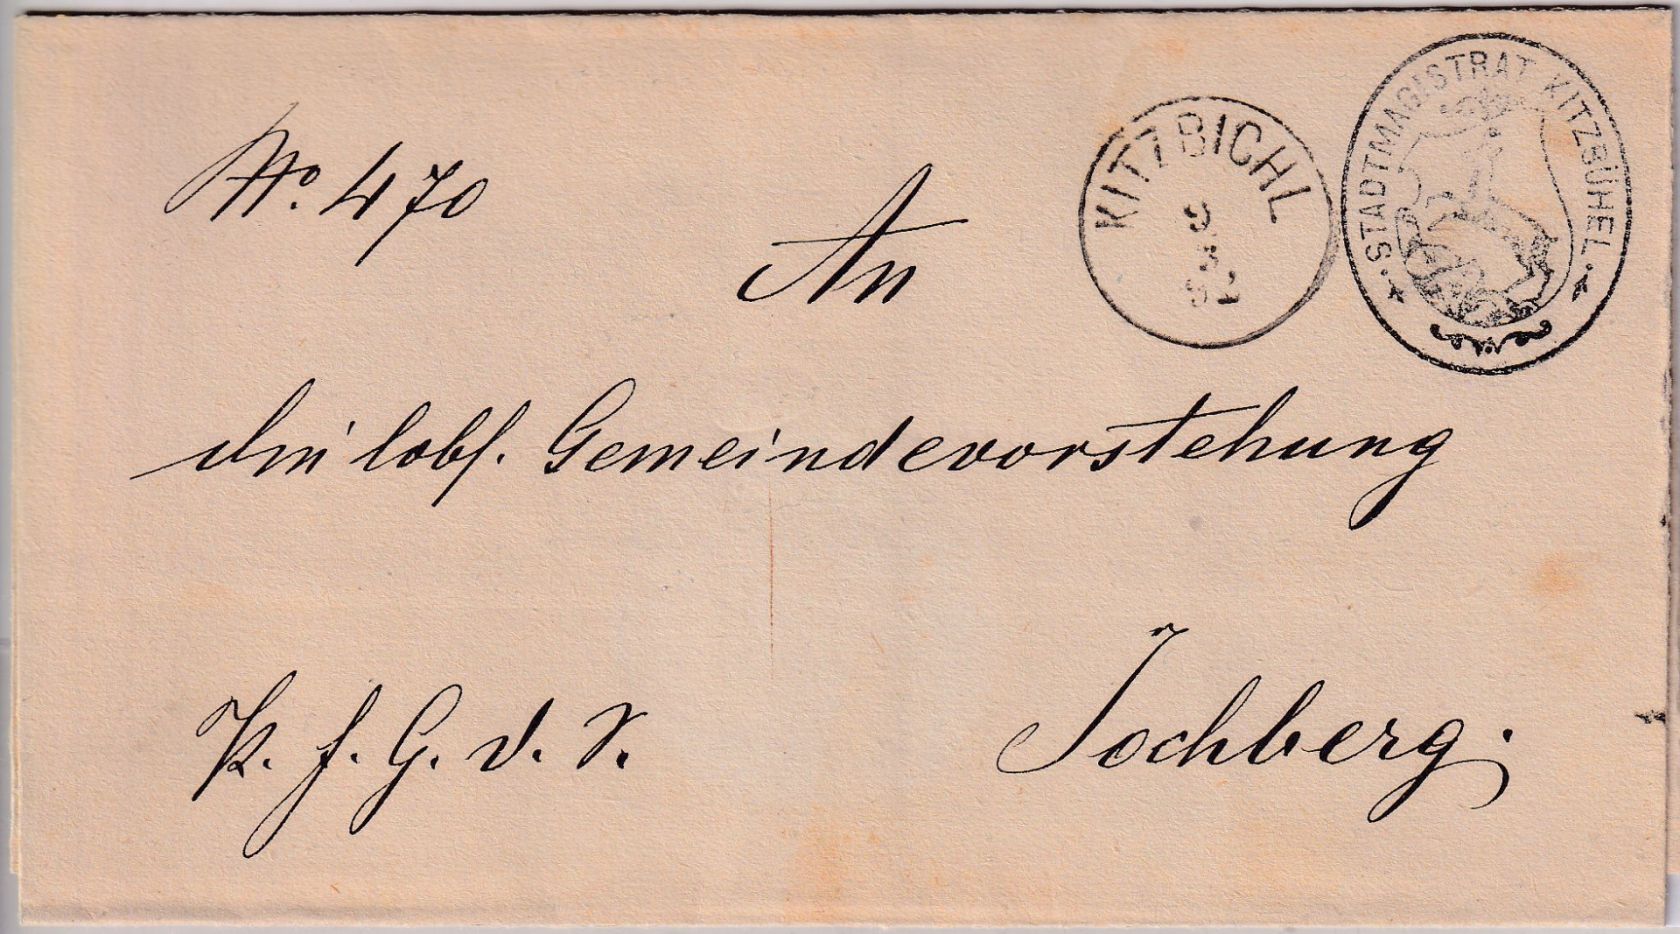 No. 470
KITZBICHL
9
3
92
STADTMAGISTRAT KITZBÜHEL
An
die lobl. Gemeindevorstehung
Jochberg.